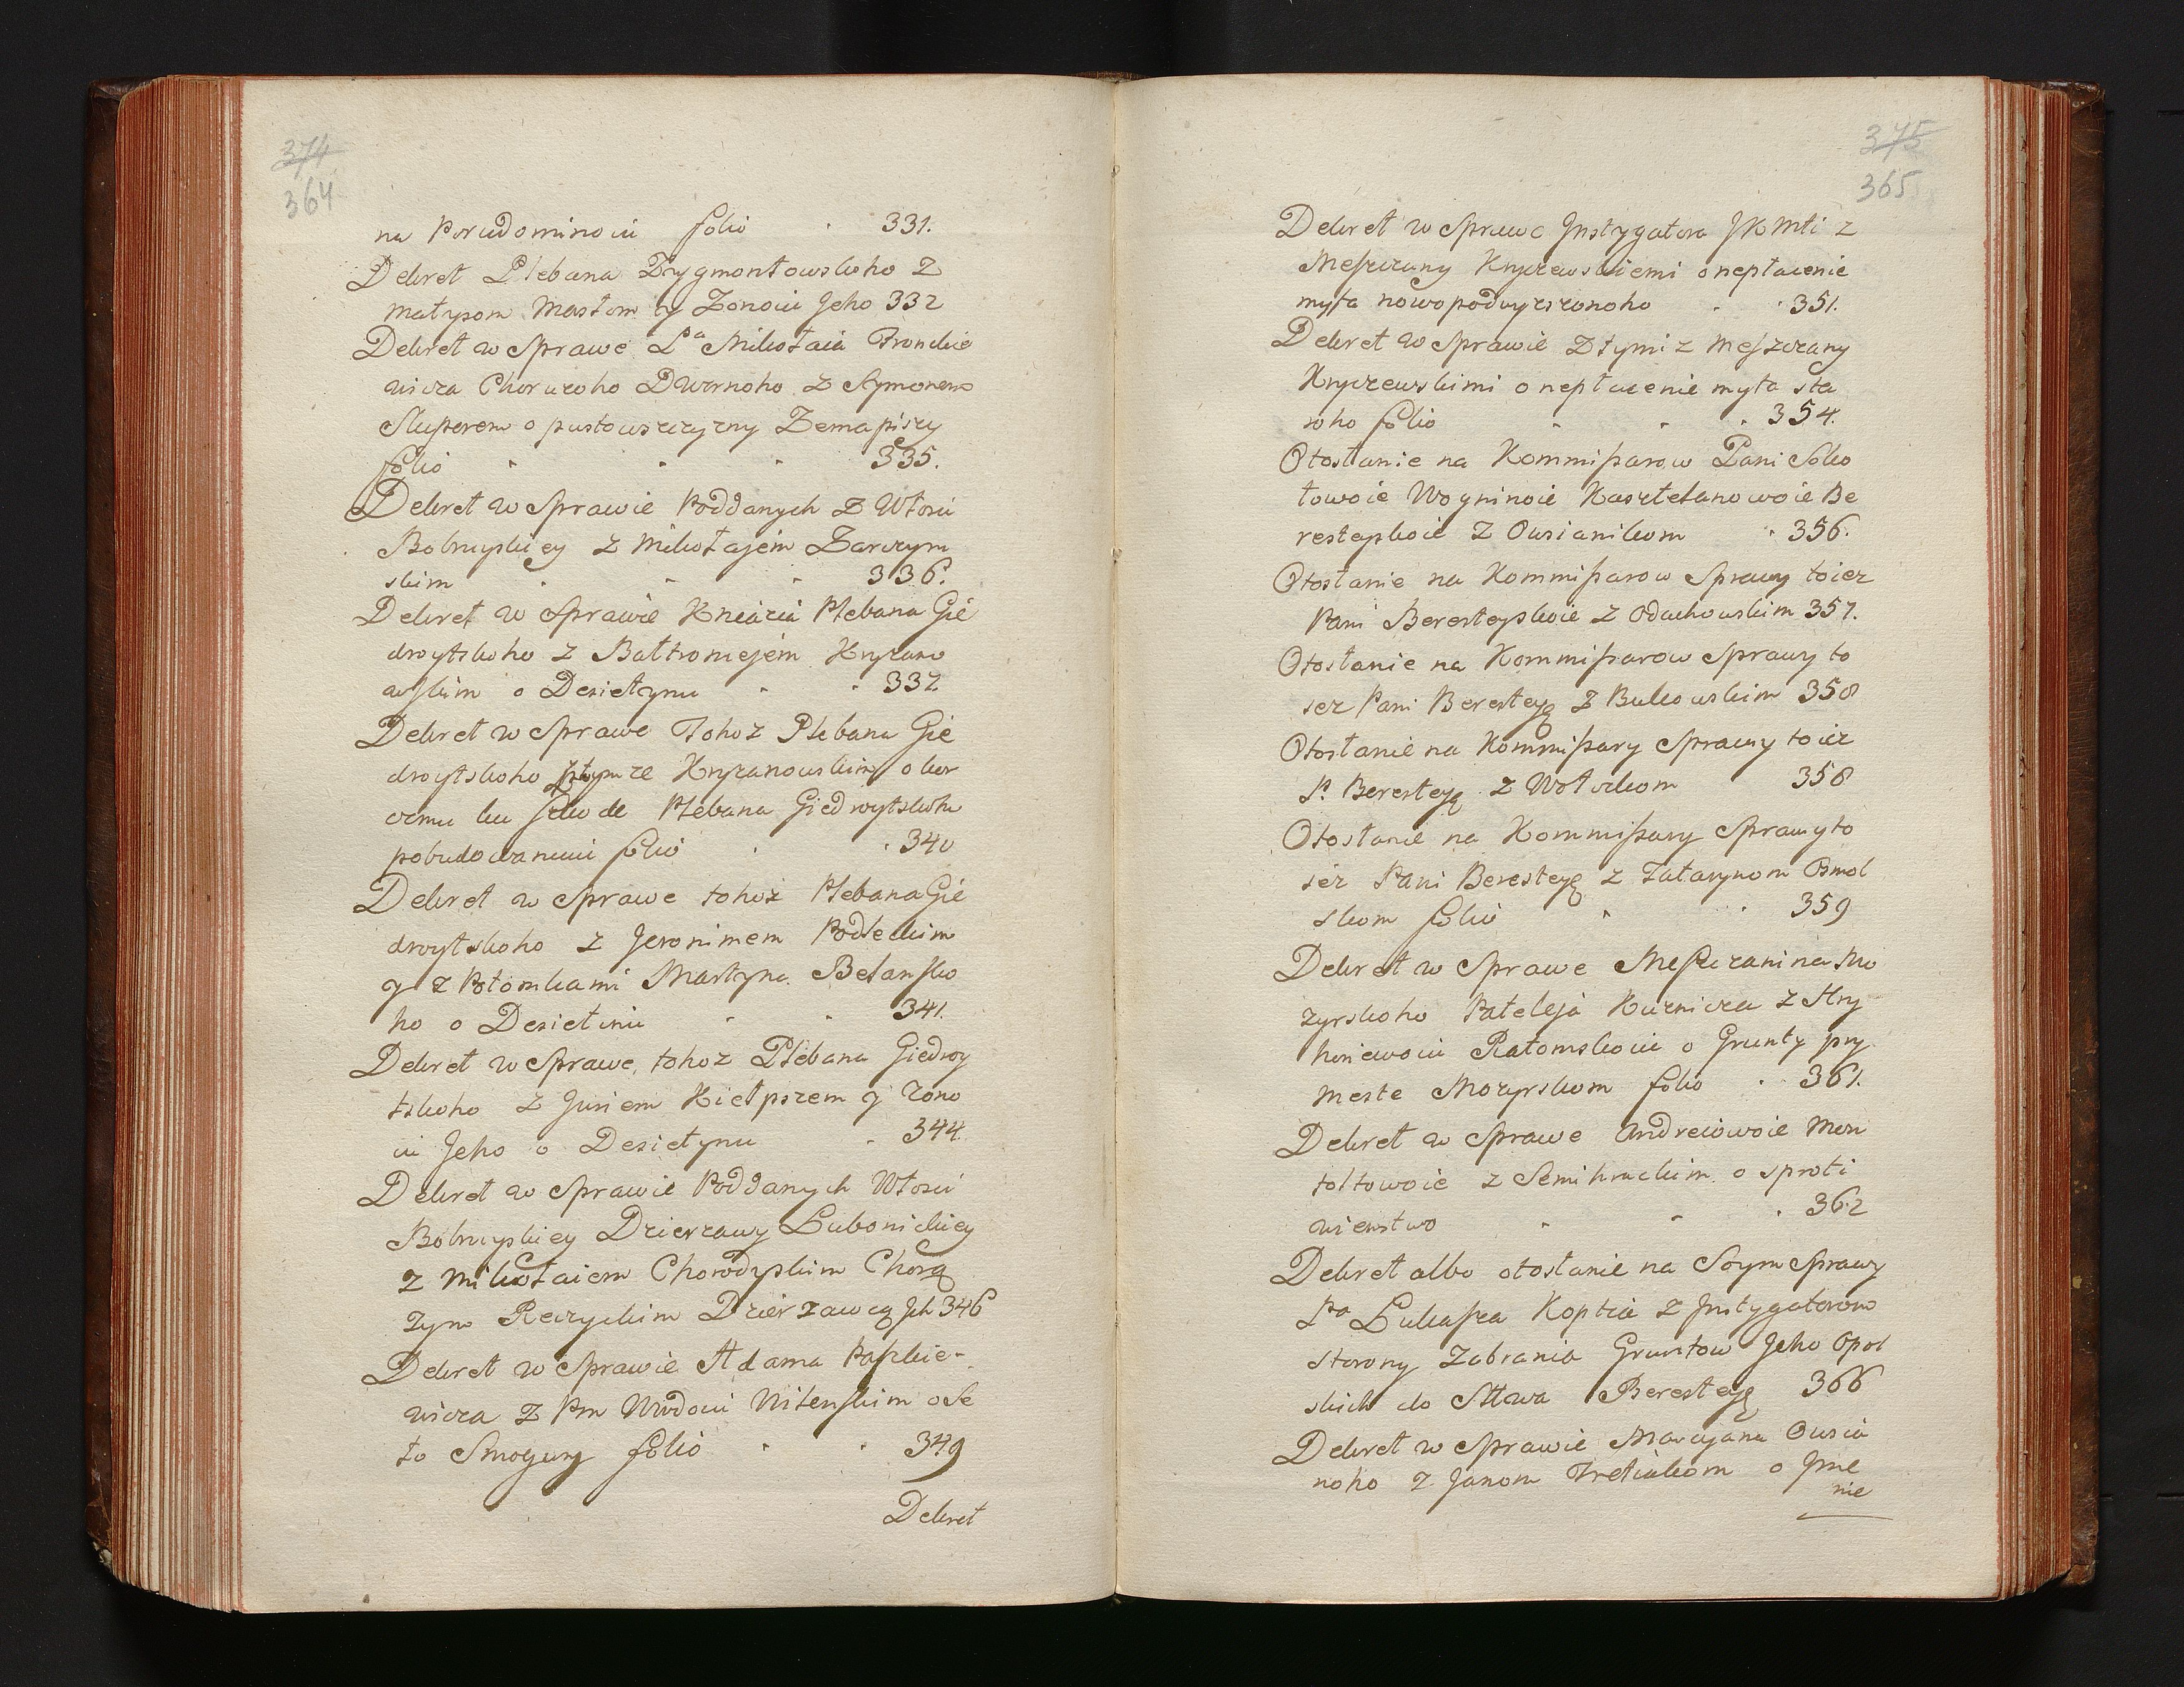 374
364
na Porudominoiu folio 331.
Dekret Plebana Zygmontowskoho Z
Matysom Mastom ey Zonoiu Jeho 332
Dekret w Sprawe Pa Mikołaia Fronckie
wicza Choruzoho Dwornoho z Symonem
Sluperem o pustowszczyzny Zemapiszy
folio 335.
Dekret w Sprawie Poddanych z Włosci
Bobruyskiey z Mikołajem Zarczyn
skim 336.
Dekret w Sprawie Kniazia Plebana Gie
droytskoho z Baltromejem Kryzano
wskim o Desietynu 337.
Dekret w Sprawe Tohoz Plebana Gie
droytskoho ze Kryzanowskim o kor
czmu ku szkode Plebana Giedroytskoho
pobudowanuiu folio 340
Dekret w Sprawe tohoż Plebana Gie
droytskoho z Jeronimem Podleckim
y z Potomkami Martyna Belansko
ho o Desietinu 341.
Dekret w Sprawe, tohoz Plebana Giedroy
tskoho z Juriem Kiełpszem y Zono
iu Jeho o Desietynu 344
Dekret w Sprawie Poddanych Włosci
Bobruyskiey Dzierzawy Lubonickiey
z Mikołaiem Chorodyskim Chorą
zym Reczyckim Dzierzawcą Jch 346
Dekret w Sprawie Adama Paszkie-
wicza z Pm Wwdoiu Witenskim o Se
ło Smogury folio 349
Dekret
375
365
Dekret w Sprawe Jnstygatora JKMti z
Meszczany Knyszewskiemi o nepłacenie
myta nowopodwyzszonoho 351.
Dekret w Sprawie Z tymi z Meszczany
Knyszewskimi o nepłacenie myta sta
roho folio 354.
Otosłanie na Kommissarow Pani Soko
łowoie Woyninoie Kasztelanowoie Be
resteyskoie z Owsianikom 356.
Otosłanie na Kommissarow Sprawy toiez
Pani Beresteyskoie z Odachowskim 357.
Otosłanie na Kommissarow Sprawy to
iez Pani Beresteyę z Bukowskim 358
Otosłanie na Kommissary Sprawy toiez
P. Beresteyę z Wołockom 358
Otosłanie na Kommissary Sprawy to
iez Pani Beresteyę z Tatarynom Osmol
skom folio 359
Dekret w Sprawe Meszczanina Mo
zyrskoho Pateleja Kuznicza z Hry
horiewoiu Ratomskoiu o Grunty pry
meste Mozyrskom folio 361.
Dekret w Sprawe Andreiowoie Mon
tołtowoie z Semihrackim o sproti
wienstwo 362
Dekret albo otosłanie na Soym Sprawy
Pa Lukasza Koptia z Jnstygatorom
storony Zabrania Gruntow Jeho Opol
skich do Sttwa Beresteyę 366
Dekret w Sprawie Marcyana Owsia
noho z Janom Tretiakom o Jme
nie